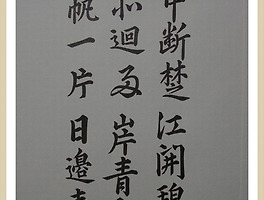 中断楚江開碧
迴兩岸青
帆一片日邊